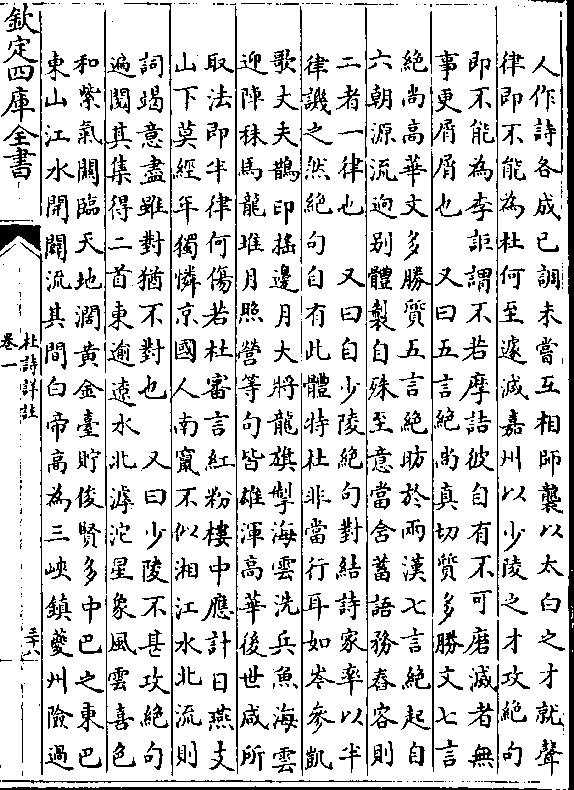 人作詩各成已調未嘗互相師襲以太白之才就聲
律即不能為杜何至遽減嘉州以少陵之才攻絕句
即不能為李詎謂不若摩詰彼自有不可磨滅者無
事更屑屑也　又曰五言絕尚真切質多勝文七言
絕尚高華文多勝質五言絕昉於兩漢七言絕起自
六朝源流逈别體製自殊至意當含蓄語務舂容則
二者一律也　又曰自少陵絕句對結詩家率以半
律譏之然絕句自有此體特杜非當行耳如岑參凱
歌丈夫鵲印搖邊月大將龍旗掣海雲洗兵魚海雲
迎陣秣馬龍堆月照營等句皆雄渾高華後世咸所
取法即半律何傷若杜審言紅粉樓中應計日燕支
山下莫經年獨憐京國人南竄不似湘江水北流則
詞竭意盡雖對猶不對也　又曰少陵不甚攻絕句
遍閱其集得二首東逾遼水北滹沱星象風雲喜色
和紫氣關臨天地濶黄金臺貯俊賢多中巴之東巴
東山江水開闢流其間白帝高為三峽鎮夔州險過
欽定四庫全書
杜詩詳註
卷一
三十八